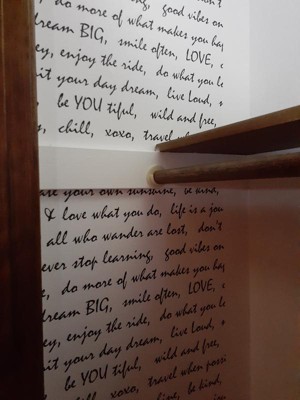 learning, good vibes on
do more of what makes you hap
dream BIG, smile often, LOVE, c
ey, enjoy the ride, do what you lo
it your day dream, live Loud,
be YOU tiful, wild and free,
chill, xoxo, travel when
your own sunshine, be kind,
& love what you do, life is a jou
all who wander are lost, don't
ever stop learning, good vibes on
do more of what makes you hap
dream BIG, smile often, LOVE, c
ey, enjoy the ride, do what you lo
it your day dream, live Loud,
be YOU tiful, wild and free,
chill, xoxo, travel when possi
sunshine, be kind,